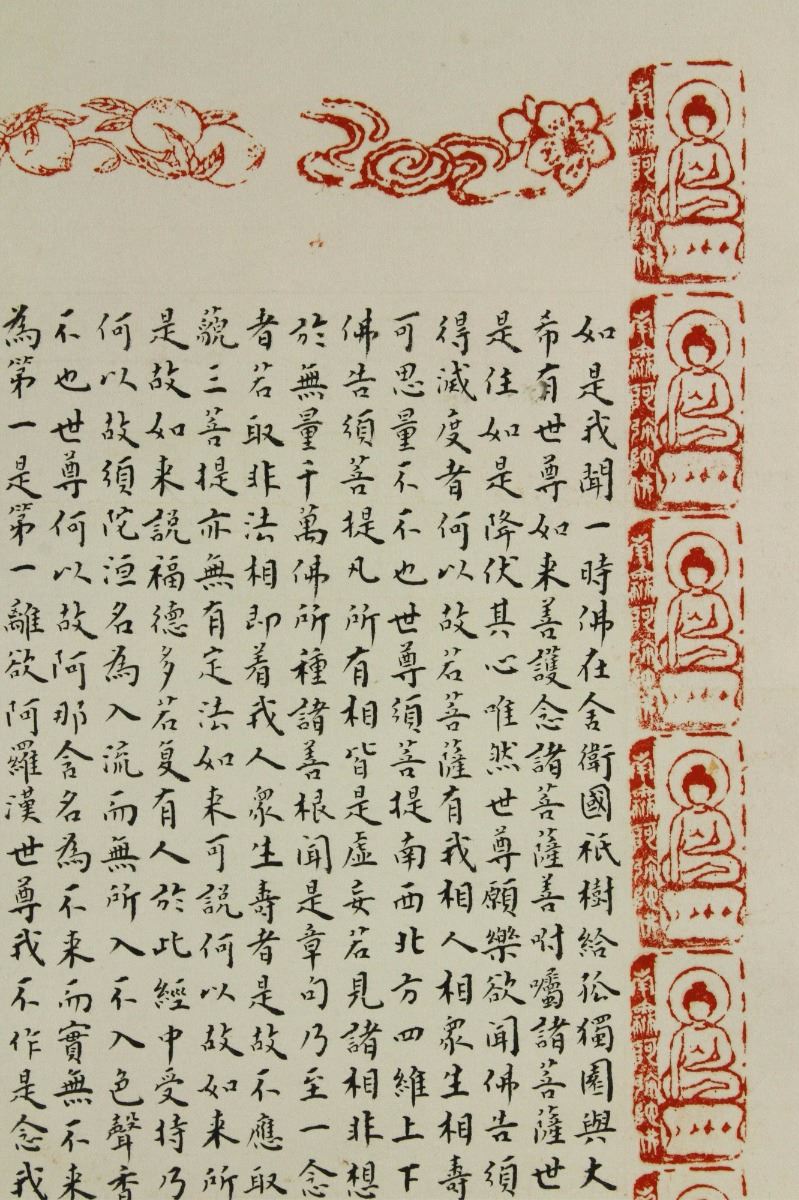 南無阿弥陀佛
南無阿弥陀佛
南無阿弥陀佛
南無阿弥陀佛
南無阿弥陀佛
如是我聞一時佛在舍衛國祇樹給孤獨園與大
希有世尊如来善護念諸菩薩善咐囑諸菩薩世
是住如是降伏其心唯然世尊願樂欲聞佛告須
得滅度者何以故若菩薩有我相人相衆生相壽
可思量不不也世尊須菩提南西北方四維上下
佛告須菩提凡所有相皆是虛妄若見諸相非想
於無量千萬佛所種諸善根聞是章句乃至一念
者若取非法相即着我人衆生壽者是故不應取
藐三菩提亦無有定法如来可說何以故如来所
是故如来說福德多若复有人於此經中受持乃
何以故須陀洹名為入流而無所入不入色聲香
不也世尊何以故阿那含名為不来而實無不来
為第一是第一離欲阿羅漢世尊我不作是念我